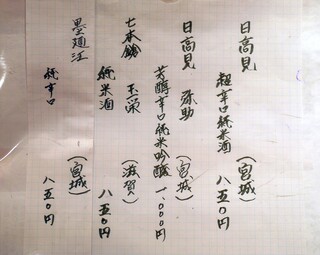 日高見
超辛口純米酒
(宮城) 八五〇円
日高見 弥助
芳醇辛口純米吟醸
(宮城) 一、〇〇〇円
七本鎗 玉栄
純米酒
(滋賀) 八五〇円
墨廼江
純辛口
(宮城) 八五〇円